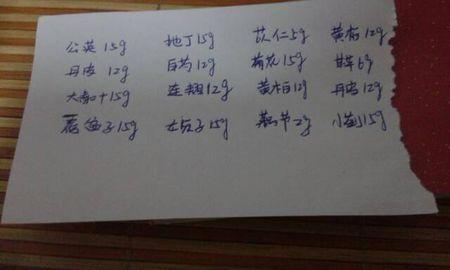 公英 15g 地丁 15g 苡仁 5g 黄芩 12g
丹皮 12g 白芍 12g 15g 甘草 6g
大 15g 连翘 12g 黄柏 12g 丹皮 12g
子 15g 女贞子 15g 2g 小蓟 15g